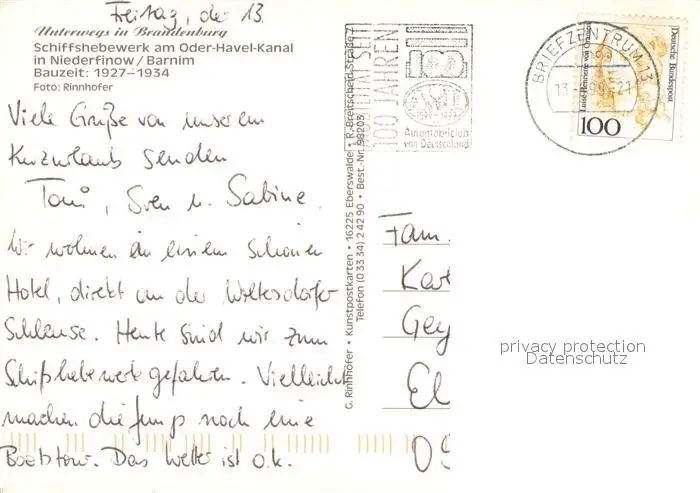 Freitag, der 13.
Unterwegs in Brandenburg
Schiffshebewerk am Oder-Havel-Kanal
in Niederfinow / Barnim
Bauzeit: 1927–1934
Foto: Rinnhofer
Viele Grüße von unserem
Kurzurlaub senden
Toni, Sven u. Sabine.
Wir wohnen in einem schönen
Hotel, direkt an der Woltersdorfer
Schleuse. Heute sind wir zum
Schiffshebewerk gefahren. Vielleicht
machen die Jungs noch eine
Bootstour. Das Wetter ist o.k.
G. Rinnhofer • Kunstpostkarten • 16225 Eberswalde • R.-Breitscheid-Straße 7
Telefon (0 33 34) 2 42 90 • Best.-Nr. 98203
MOBILITÄT SEIT
100 JAHREN
1899 - 1999
Automobilclub
von Deutschland
BRIEFZENTRUM 13
13. 99-21
Deutsche Bundespost
Luise Henriette von Oranien
100
Fam.
Kar
Gey
El
09
privacy protection
Datenschutz